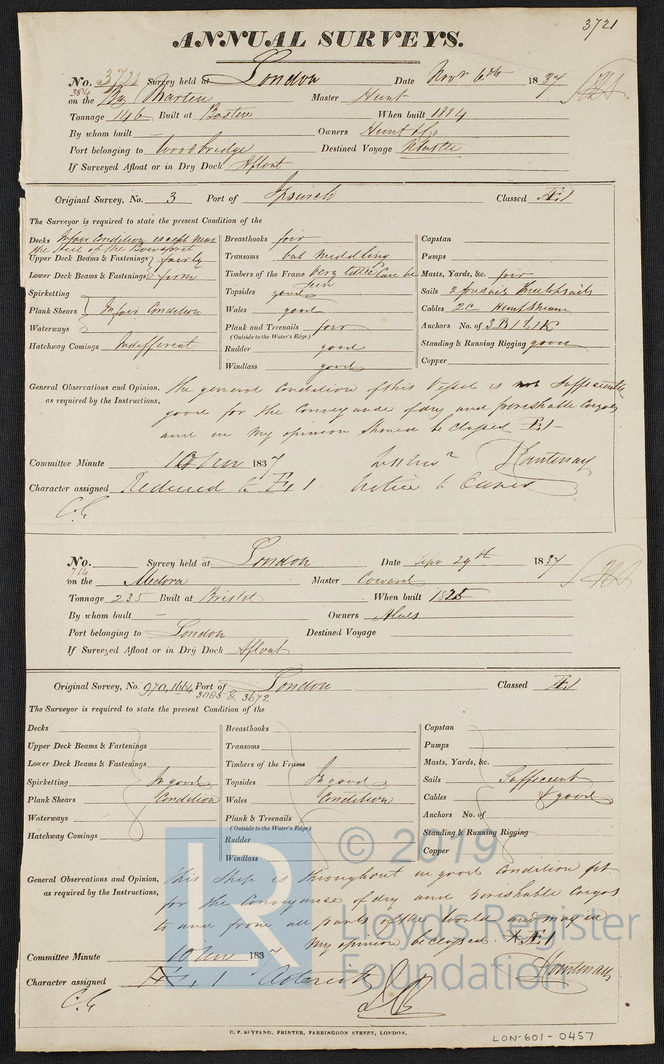 3721
ANNUAL SURVEYS.
No. 3721 Survey held at London Date Novr 6th 1837
3814
on the Bg Marten Master Hunt
Tonnage 146 Built at When built 1814
By whom built — Owners Hunt & Co
Port belonging to Woodbridge Destined Voyage
If Surveyed Afloat or in Dry Dock Afloat
Original Survey, No. 3 Port of Ipswich Classed Æ1
The Surveyor is required to state the present Condition of the
Decks In fair Condition except near
the heel of the Bowsprit
Upper Deck Beams & Fastenings fairly
Lower Deck Beams & Fastenings firm
Spirketting
Plank Shears In fair Condition
Waterways
Hatchway Comings Indifferent
Breasthooks fair
Transoms but middling
Timbers of the Frame Very little can be
seen
Topsides good
Wales good
Plank and Treenails fair
(Outside to the Water's Edge)
Rudder good
Windlass good
Capstan
Pumps
Masts, Yards, &c. fair
Sails 2
Cables 2C Hemp Stream
Anchors No. of 3B 1S 1K
Standing & Running Rigging good
Copper
General Observations and Opinion,
as required by the Instructions,
The general Condition of this Vessel is not Sufficiently
good for the Conveyance of dry and perishable Cargoes
and in my opinion should be Classed E1
Committee Minute 10 Nov 1837 Courtenay
Character assigned Reduced to E1 Notice to Owners
No. Survey held at London Date Sepr 29th 1837
714
on the Medora Master Coward
Tonnage 235 Built at Bristol When built 1825
By whom built — Owners
Port belonging to London Destined Voyage
If Surveyed Afloat or in Dry Dock Afloat
Original Survey, No. 970, 1664 Port of London Classed Æ1
3085 & 3672
The Surveyor is required to state the present Condition of the
Decks
Upper Deck Beams & Fastenings
Lower Deck Beams & Fastenings
Spirketting In good
Plank Shears Condition
Waterways
Hatchway Comings
Breasthooks
Transoms
Timbers of the Frame
Topsides In good
Wales Condition
Plank & Treenails
(Outside to the Water's Edge)
Rudder
Windlass
Capstan
Pumps
Masts, Yards, &c.
Sails Sufficient
Cables & good
Anchors No. of
Standing & Running Rigging
Copper
General Observations and Opinion,
as required by the Instructions,
This Ship is throughout in good Condition fit
for the Conveyance of dry and perishable Cargoes
to and from all parts of the World and may in
my opinion be classed Æ1
Committee Minute 10 Nov 1837 Courtenay
Character assigned Æ 1 Asterisk
LR
© 2019
Lloyd's Register
Foundation
C. F. SEYFANG, PRINTER, FARRINGDON STREET, LONDON.
LON-601-0457